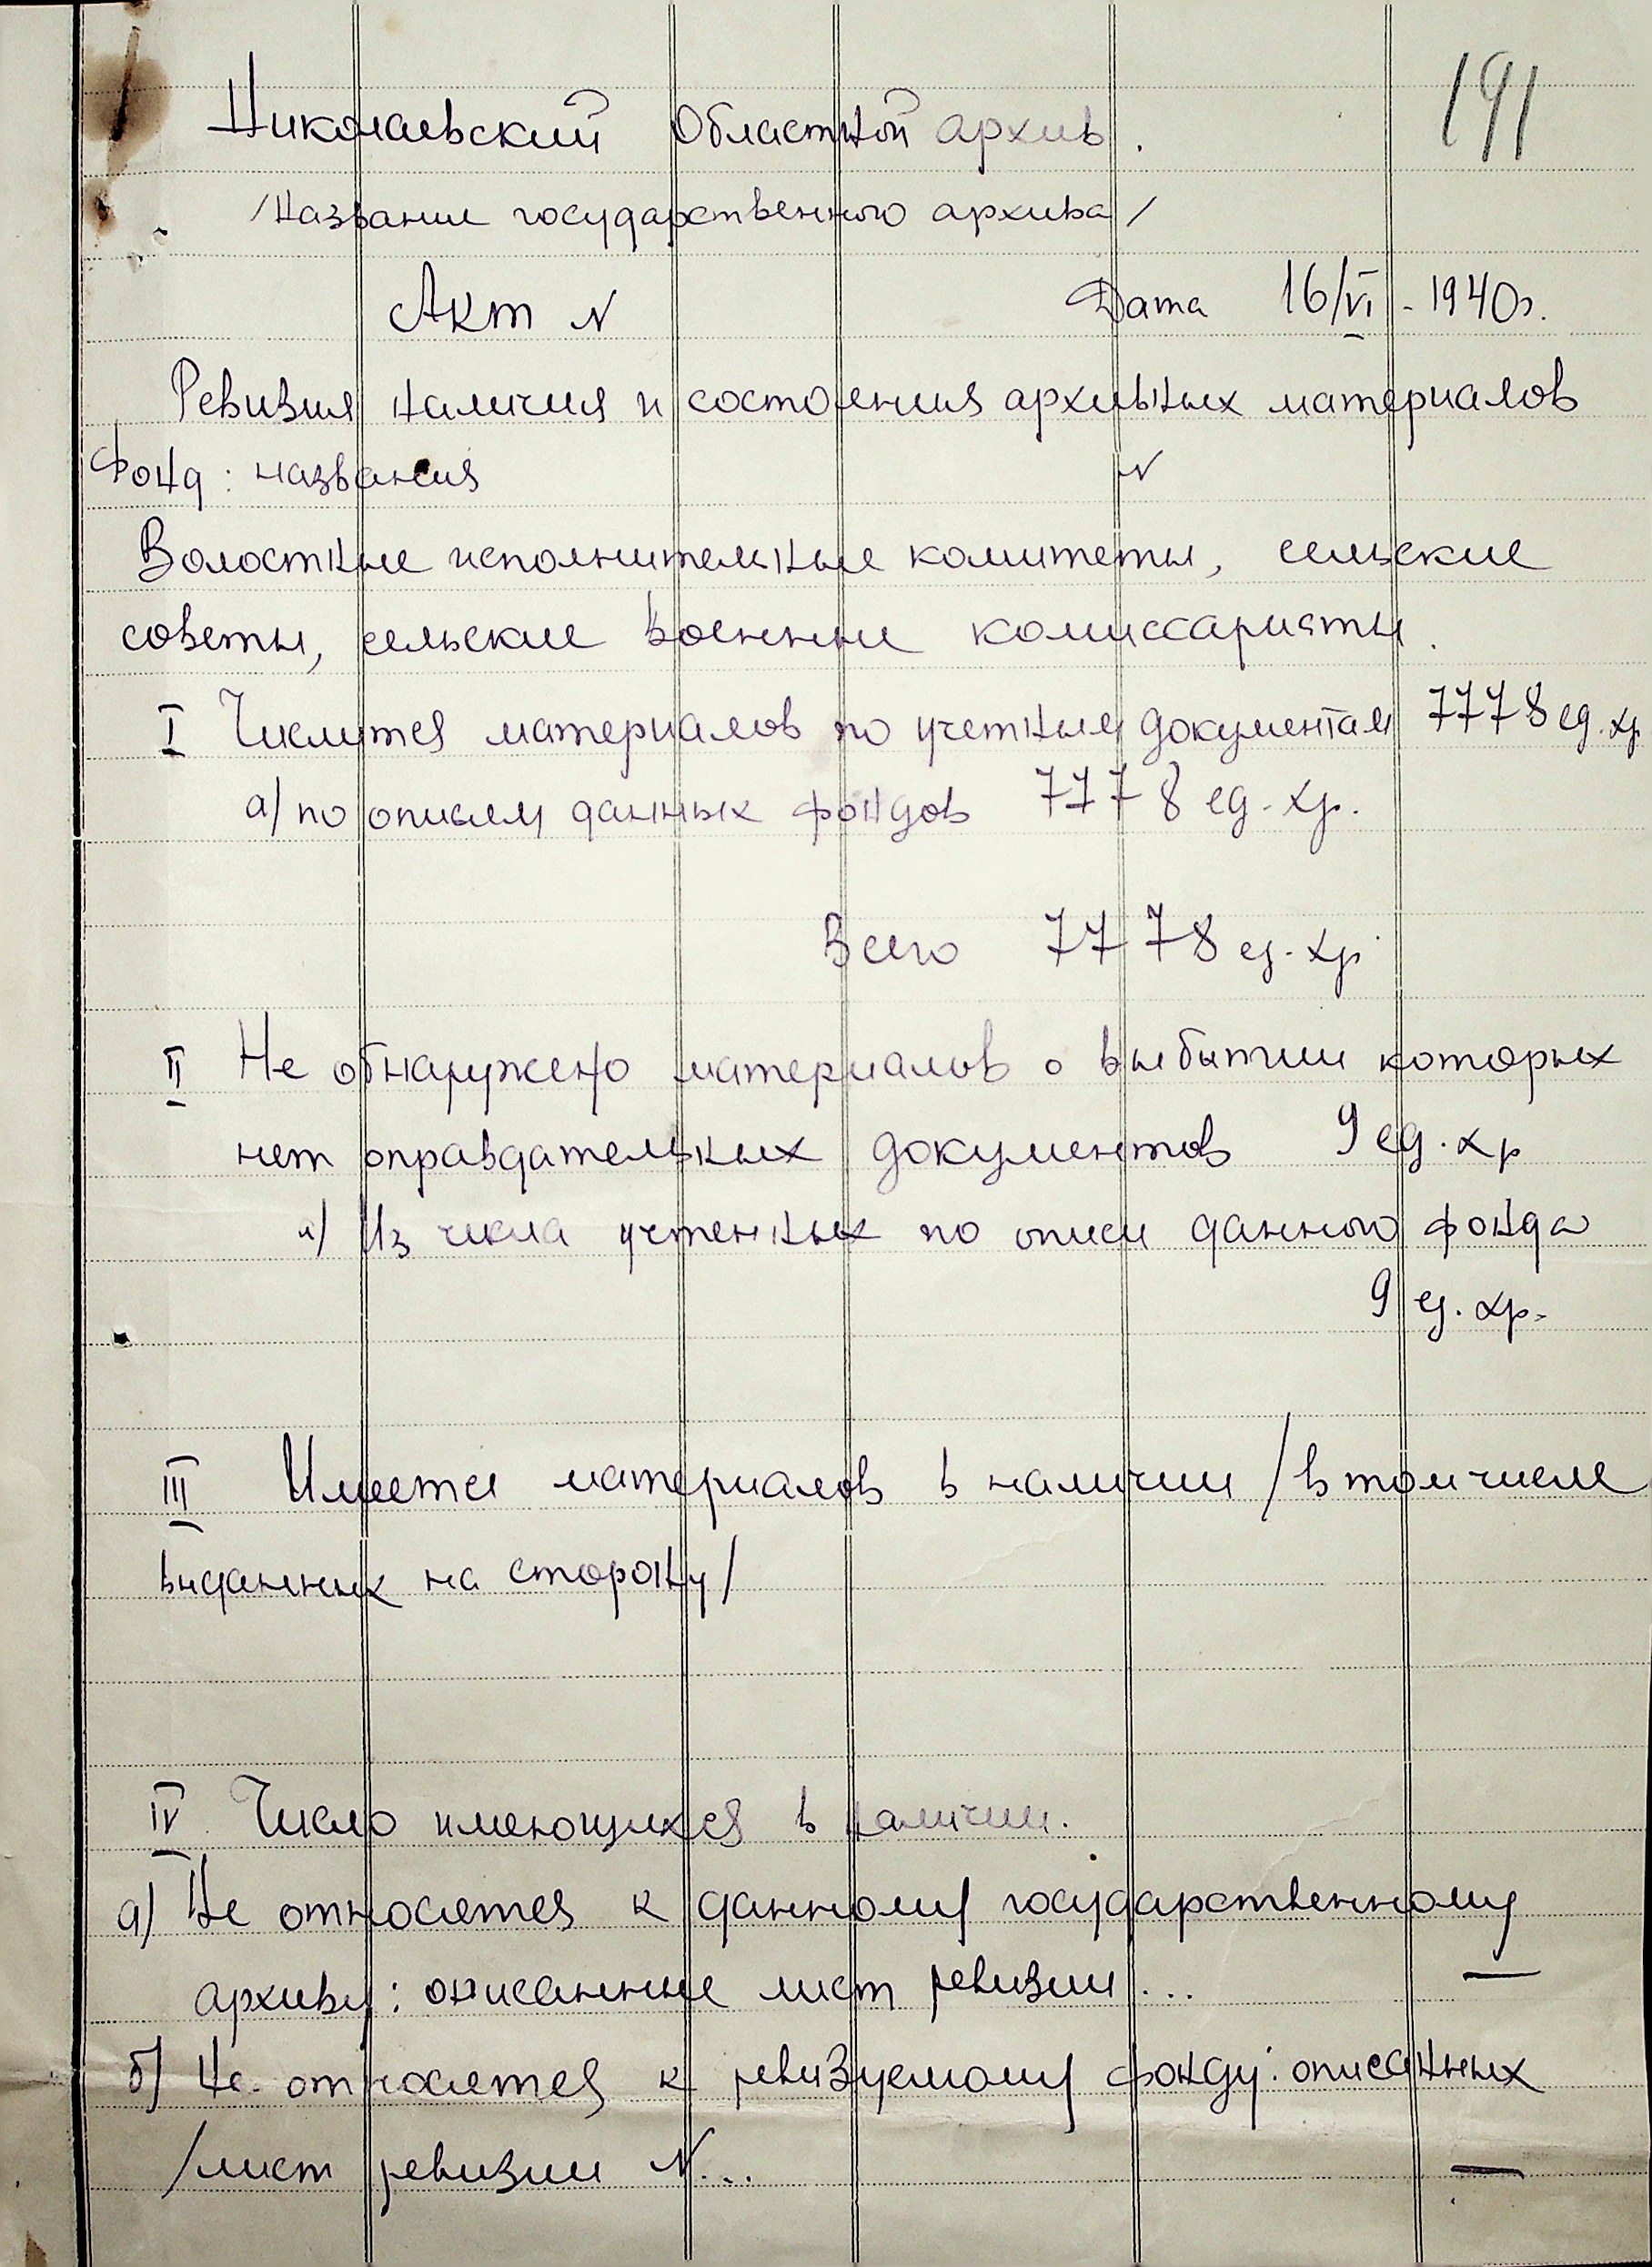 191
Николаевский Областной архив.
/Название государственного архива/
Акт N Дата 16/VI - 1940г.
Ревизия наличия и состояния архивных материалов
Фонд: названия N
Волостные исполнительные комитеты, сельские
советы, сельские военные комиссариаты.
I Числится материалов по учетным документам 7778 ед. хр
а) по описям данных фондов 7778 ед. хр.
Всего 7778 ед. хр.
II Не обнаружено материалов о выбытии которых
нет оправдательных документов 9 ед. хр
а) Из числа учтенных по описи данного фонда
9 ед. хр.
III Имеется материалов в наличии /в том числе
выданных на сторону/
IV Число имеющихся в наличии.
а) Не относятся к данному государственному
архиву: описанные лист ревизии... —
б) Не относятся к ревизуемому фонду: описанных
/лист ревизии N... —